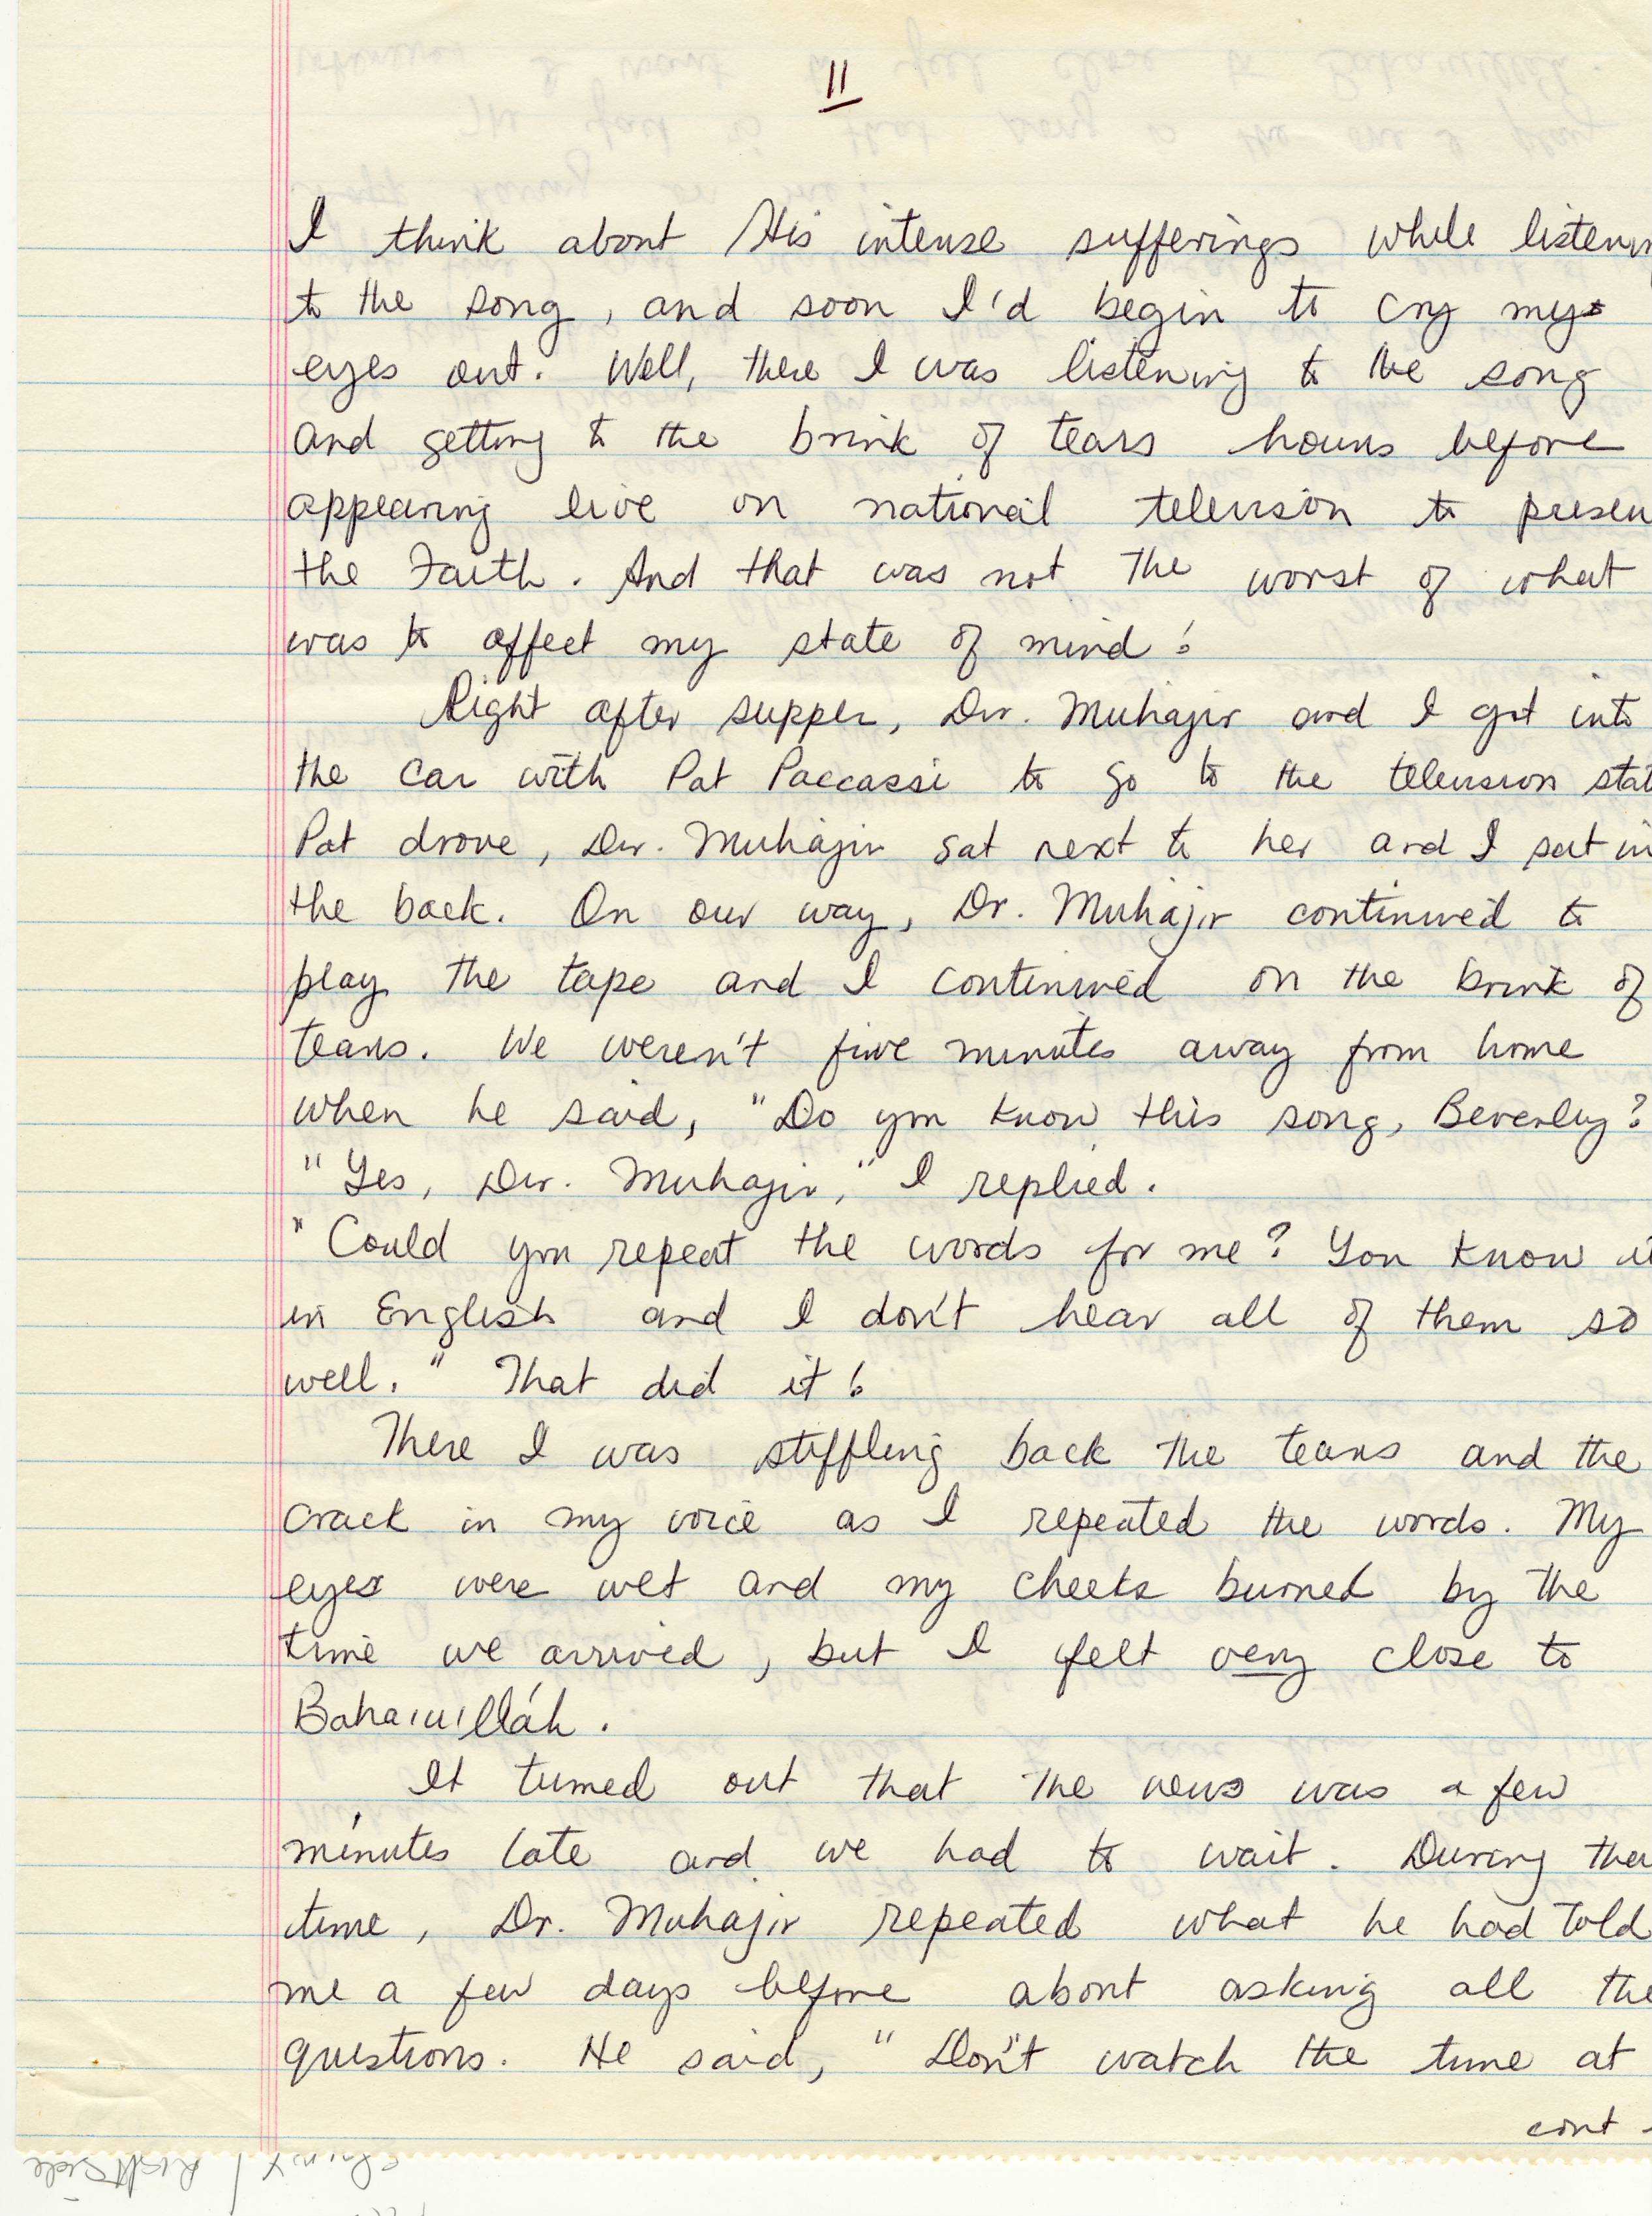 11
I think about His intense sufferings while listenin
to the song, and soon I'd begin to cry my
eyes out. Well, there I was listening to the song
and getting to the brink of tears hours before
appearing live on national television to presen
the Faith. And that was not the worst of what
was to affect my state of mind!
Right after supper, Dr. Muhajir and I got into
the car with Pat Paccassi to go to the television stat
Pat drove, Dr. Muhajir sat next to her and I sat in
the back. On our way, Dr. Muhajir continued to
play the tape and I continued on the brink of
tears. We weren't five minutes away from home
when he said, "Do you know this song, Beverley?
"Yes, Dr. Muhajir," I replied.
"Could you repeat the words for me? You know it
in English and I don't hear all of them so
well." That did it!
There I was stiffling back the tears and the
crack in my voice as I repeated the words. My
eyes were wet and my cheeks burned by the
time we arrived, but I felt very close to
Baha'u'lláh.
It turned out that the news was a few
minutes late and we had to wait. During tha
time, Dr. Muhajir repeated what he had told
me a few days before about asking all the
questions. He said, "Don't watch the time at
cont -